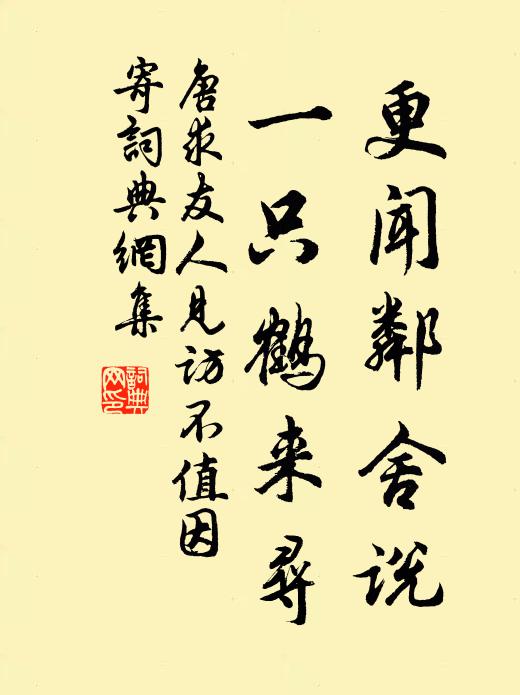 更闻鄰舍说
一只鹤来尋
唐求友人见访不值因
寄詞典網集
詞典
网印